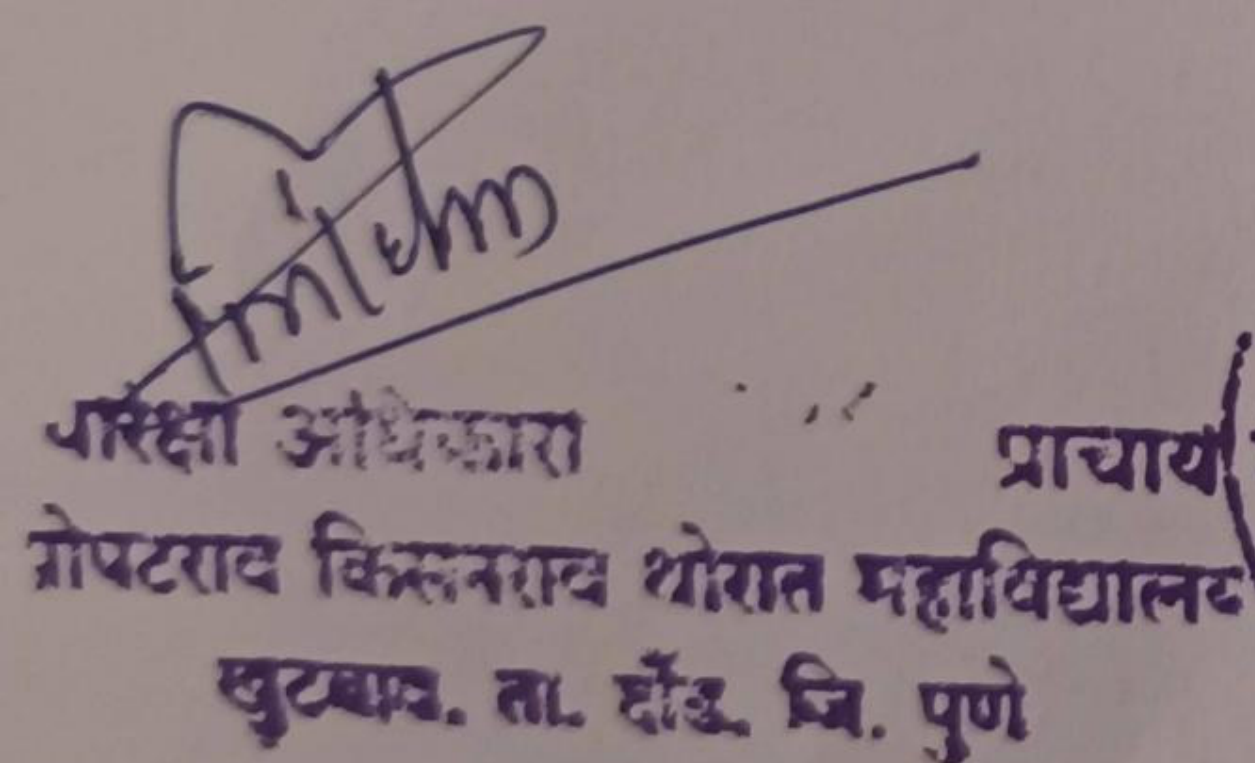 परिक्षा अधिकारी प्राचार्य
पोपटराव किसनराव थोरात महाविद्यालय
खुटबाव. ता. दौंड. जि. पुणे